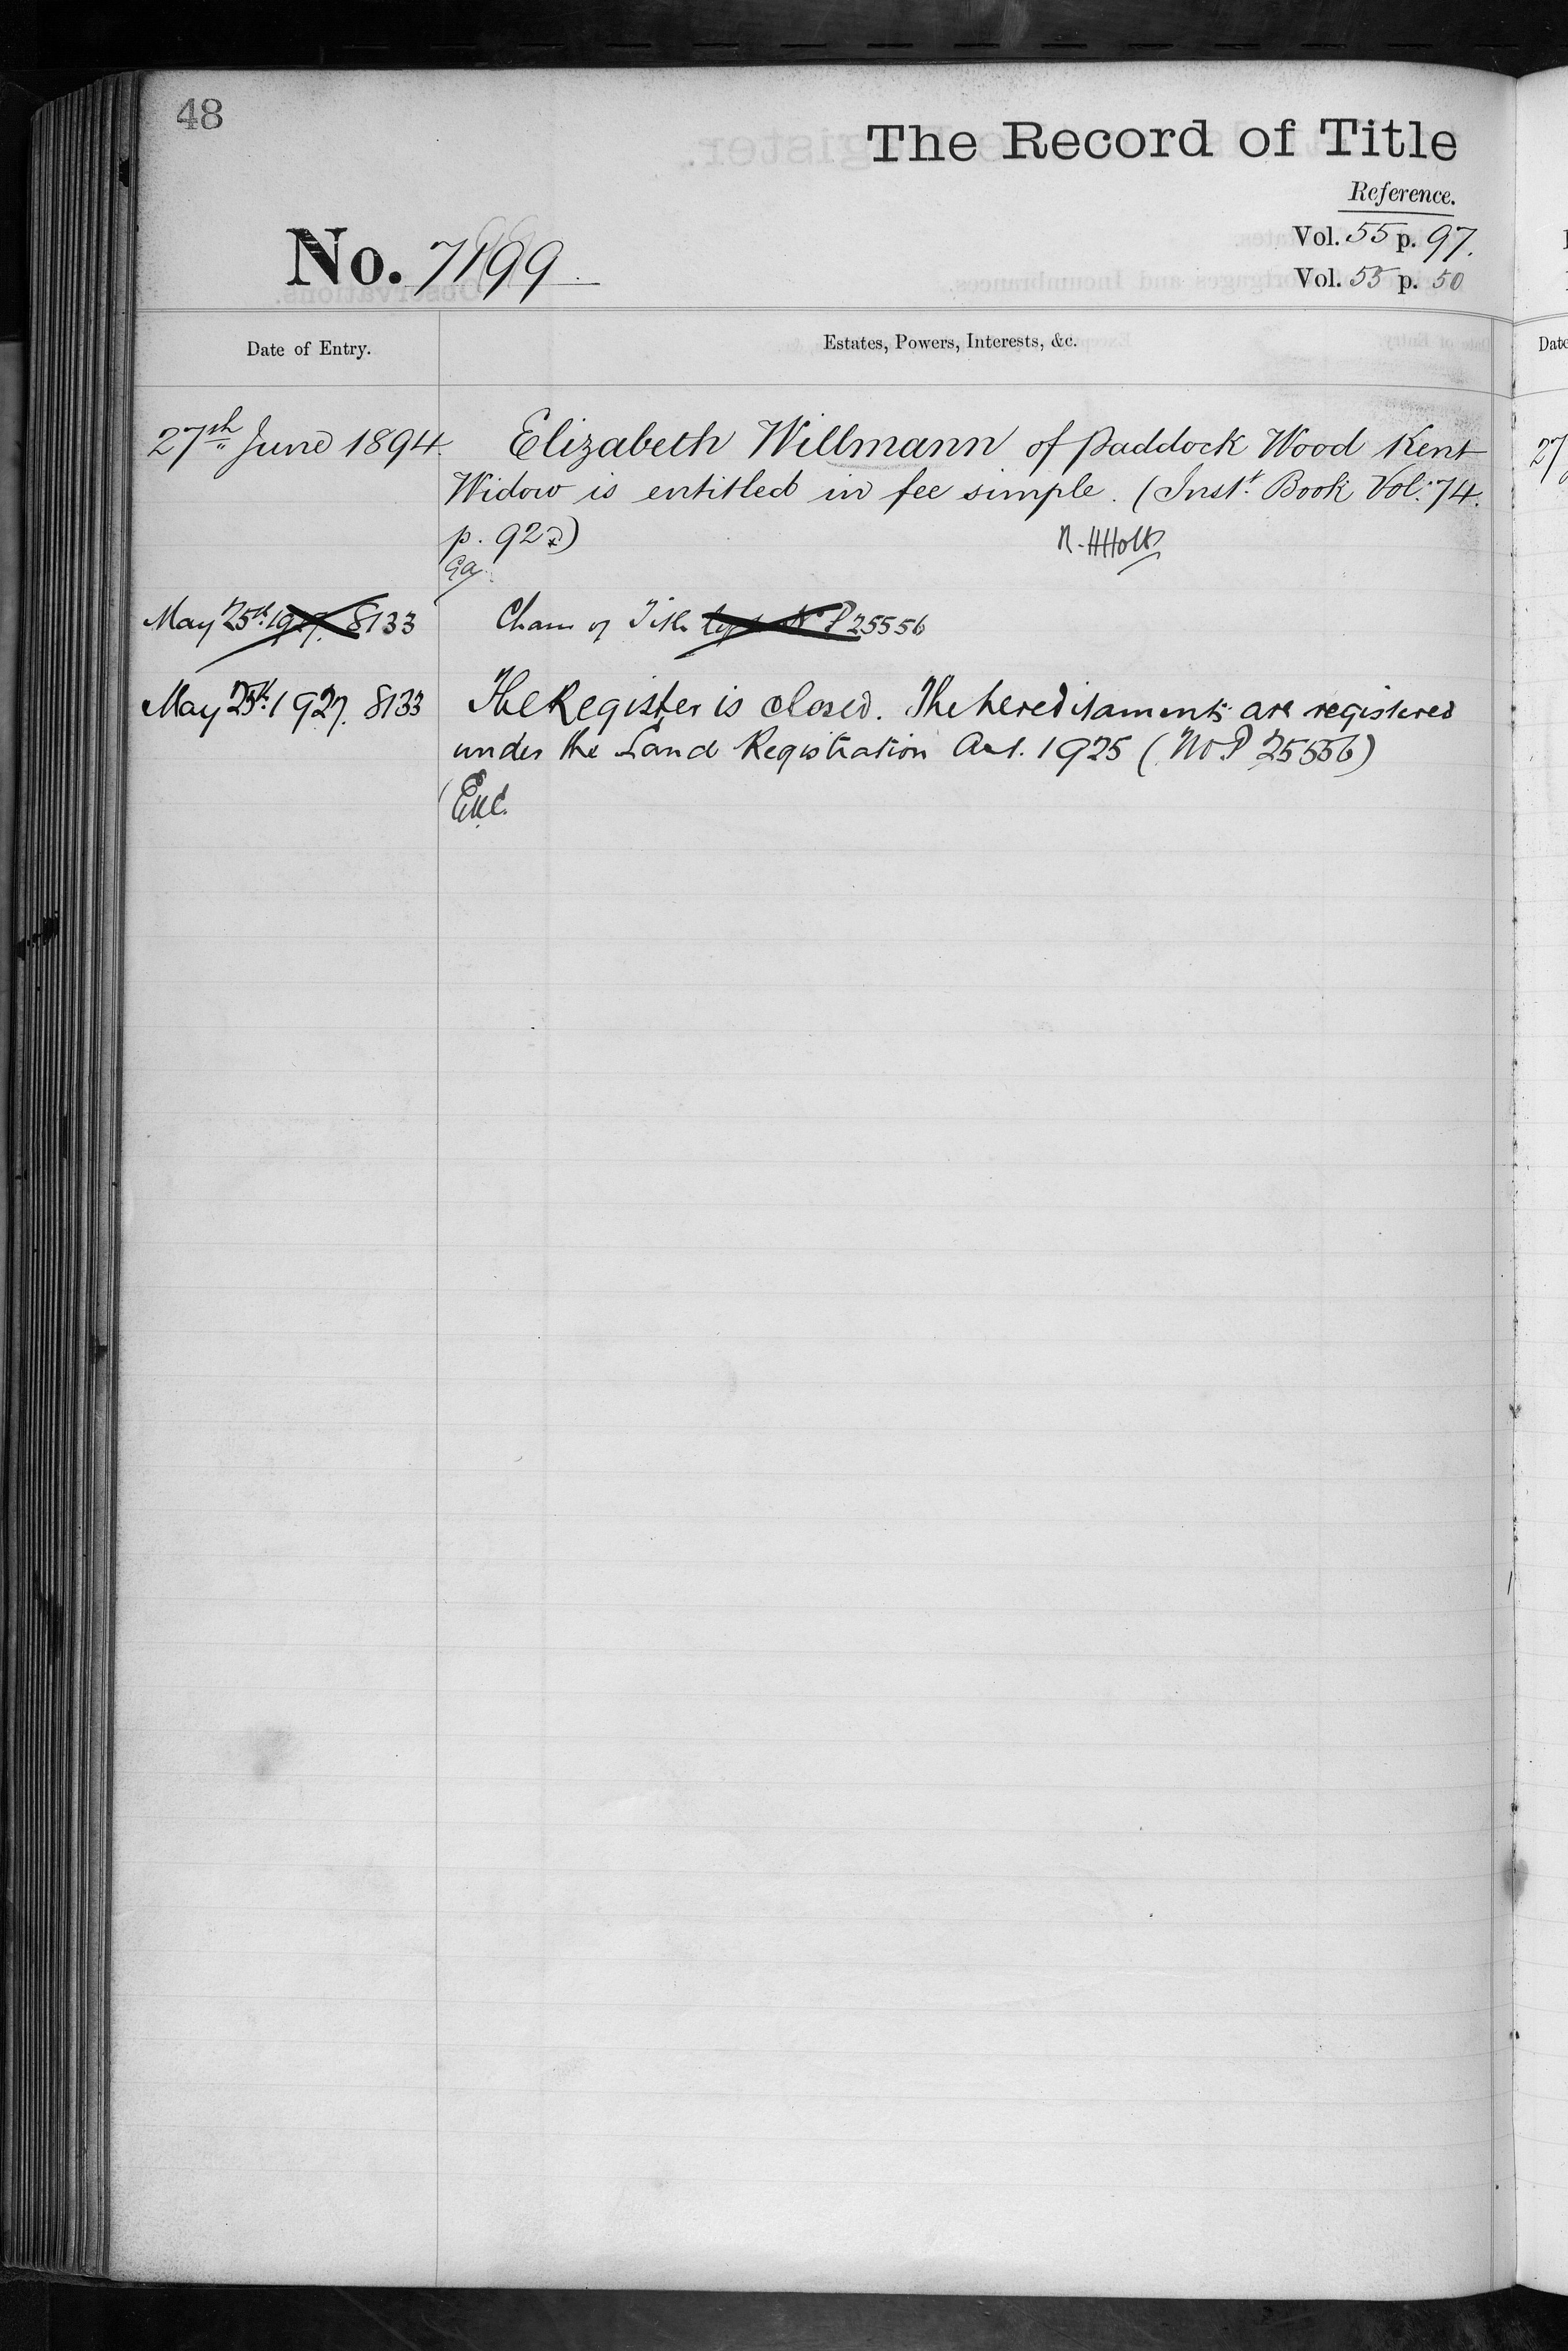 48
The Record of Title
Reference.
No. 7199
Vol. 55 p. 97.
Vol. 55 p. 50
Date of Entry.
Estates, Powers, Interests, &c.
27th June 1894.
Elizabeth Willmann of Paddock Wood Kent
Widow is entitled in fee simple. (Inst. Book Vol. 74.
p. 92)
R. H Holt
May 25th 1927. 8133
of Title P 25556
May 25th 1927. 8133
The Register is closed. The hereditaments are registered
under the Land Registration Act. 1925 (No P 25556)